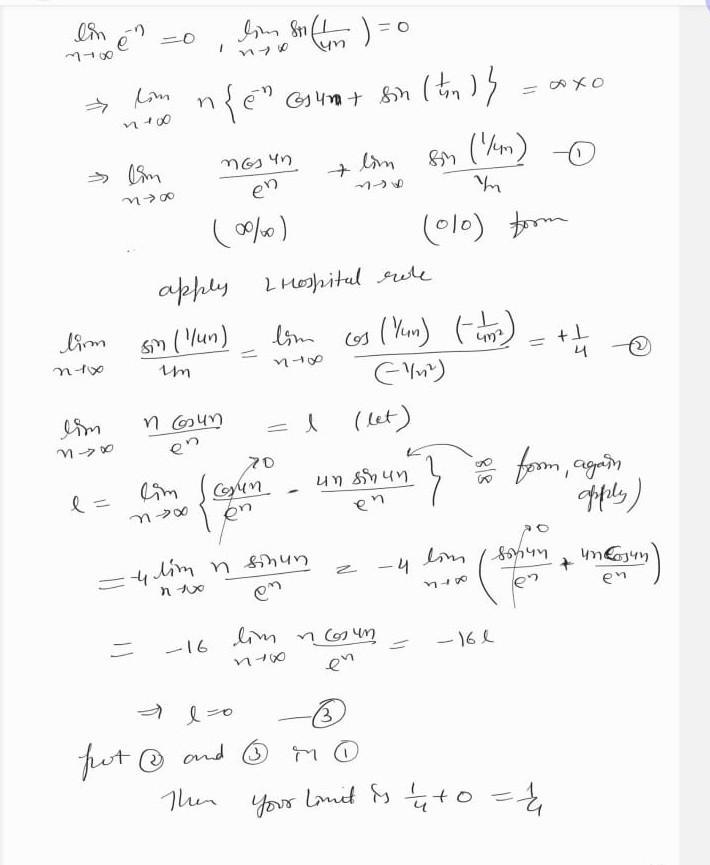 lim n→∞ e⁻ⁿ = 0 , lim n→∞ sin(1/4n) = 0
⇒ lim n→∞ n{e⁻ⁿ cos4n + sin(1/4n)} = ∞×0
⇒ lim n→∞ ncos4n/eⁿ + lim n→∞ sin(1/4n)/(1/n) —①
(∞/∞) (0/0) form
apply L Hospital rule
lim n→∞ sin(1/4n)/(1/n) = lim n→∞ cos(1/4n) (-1/4n²)/(-1/n²) = +1/4 —②
lim n→∞ n cos4n/eⁿ = l (let)
l = lim n→∞ {cos4n/eⁿ →0 - 4n sin4n/eⁿ} ∞/∞ form, again apply)
= -4 lim n→∞ n sin4n/eⁿ = -4 lim n→∞ (sin4n/eⁿ →0 + 4ncos4n/eⁿ)
= -16 lim n→∞ n cos4n/eⁿ = -16l
⇒ l=0 —③
put ② and ③ in ①
Then your limit is 1/4+0 = 1/4